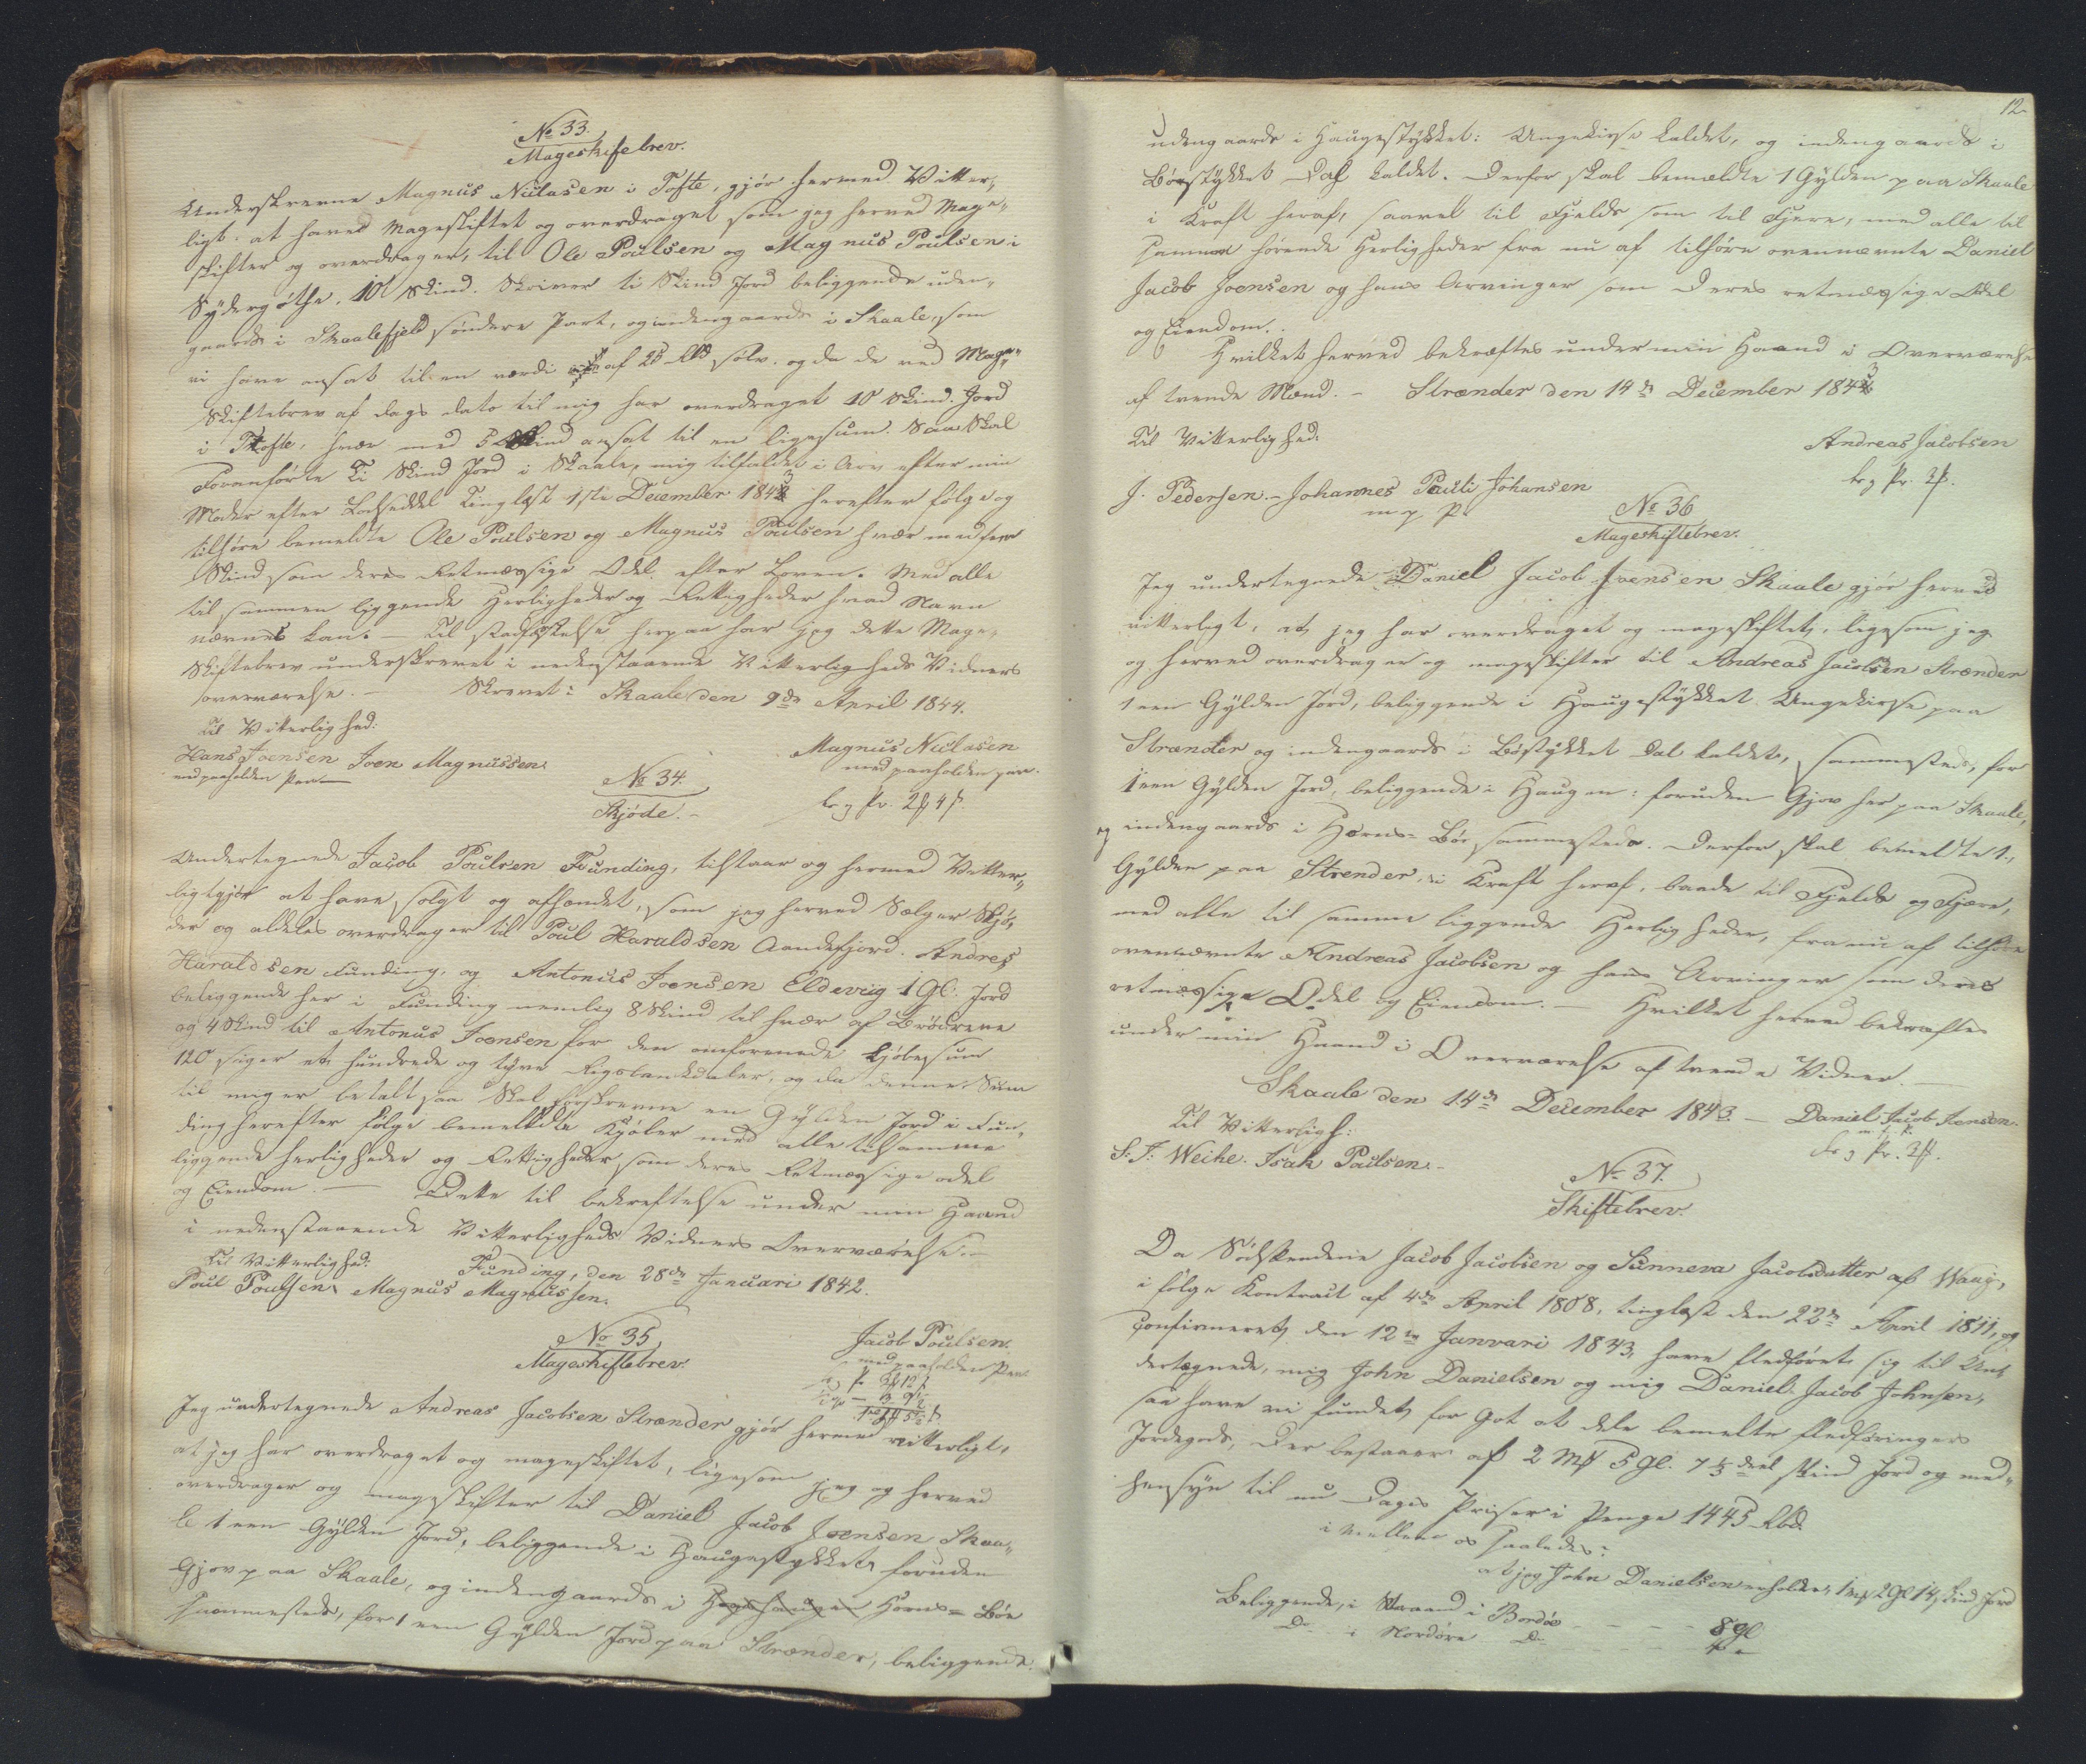 No 33.
Mageskiftebrev.
Underskrevne Magnus Niclasen i Tofte, gjör hermed Vitter„
ligt at haved Mageskiftet og overdraget som jeg herved Mage„
skifter og overdrager til Ole Poulsen og Magnus Poulsen i
Sydergöthe, 10 Skind. Skriver ti Skind Jord beliggende uden„
gaards i Skaalefjeld söndere Part, og indengaards i Skaale, som
vi have ansat til en værdi af 25 Rbd sölv. og da de ved Mage„
Skiftebrev af dags dato til mig har overdraget 10 Skind Jord
i Tofte, hver med 5 Skind ansat til en ligesum. Saa Skal
Foranförte Ti Skind Jord i Skaale, mig tilfaldet i Arv efter min
Moder efter Lodseddel Tinglæst 1ste December 1843 herefter fölge og
tilhöre bemeldte Ole Poulsen og Magnus Poulsen hver med fem
Skind som deres Retmæssige Odel efter Loven. Med alle
til sammen liggende Herligheder og Rettigheder hvad Navn
nævnes kan. — Til stadfæstelse herpaa har jeg dette Mage„
Skiftebrev underskrevet i nedenstaaende Vitterligheds Vidners
overværelse. — Skrevet i Skaale den 9de April 1844.
Til Vitterlighed:
Magnus Niclasen
Hans Joensen Joen Magnussen
med paaholden pen.
med paaholden Pen
No 34.
Skjöde. -
Undertegnede Jacob Poulsen Funding, tilstaar og hermed Vitter„
ligtgjör at have solgt og afhændet, som jeg herved Sælger Skjö„
der og aldeles overdrager til Poul Haraldsen Andefjord. Andres
Haraldsen Funding, og Antonius Joensen Eldevig 1 Gl. Jord
beliggende her i Funding nemlig 8 Skind til hver af Brödrene
og 4 Skind til Antonius Joensen for den omforenede Kjöbesum
120 siger et hundrede og tyve Rigsbankdaler, og da denne Sum
til mig er betalt saa Skal forskrevne en Gylden Jord i Fun„
ding herefter fölge bemeldte Kjöber med alle tilsamme
liggende herligheder og Rettigheder som deres Retmæssige odel
og Eiendom. — Dette til bekreftelse under men Haand
i nedenstaaende Vitterligheds Vidners Overværelse. -
Til Vitterlighed: Funding, den 28de Januari 1842.
Poul Poulsen Magnus Magnussen.
Jacob Poulsen.
med paaholden Pen
No 35
Mageskiftebrev.
Jeg undertegnede Andreas Jacobsen Strænder gjör hermed vitterligt,
at jeg har overdraget og mageskiftet, ligesom jeg og herved
overdrager og mageskifter til Daniel Jacob Joensen Skaa„
le 1 een Gylden Jord, beliggende i Haugestykket foruden
Gjov paa Skaale, og indengaards i Horns= Böe
sammesteds, for 1 een Gylden Jord paa Strænder, beliggende
12
udengaards i Haugestykket: Ungekirse kaldet, og indengaards i
Böstykket Dal kaldet. Derfor skal bemældte 1 Gylden paa Skaale
i Kraft heraf, saavel til Fjelds som til Fjere, med alle til
samme hörende Herligheder fra nu af tilhöre ovennævnte Daniel
Jacob Joensen og hans Arvinger som deres retmæssige Odel
og Eiendom.
Hvilket herved bekræftes under min Haand i Overværelse
af tvende Mænd. - Strænder den 14de December 1843
Til Vitterlighed:
Andreas Jacobsen
J. Pedersen. - Johannes Pauli Johansen
m p P.
No 36
Mageskiftebrev.
Jeg undertegnede Daniel Jacob Joensen Skaale gjör herved
vitterligt, at jeg har overdraget og mageskiftet, ligesom jeg
og herved overdrager og mageskifter til Andreas Jacobsen Strænder
1 een Gylden Jord, beliggende i Haugestykket Ungekirse paa
Strænder og indengaards i Böstykket Dal kaldet, sammesteds, for
1 een Gylden Jord, beliggende i Haugen: foruden Gjov her paa Skaale,
og indengaards i Horns= Böe sammesteds. Derfor skal bemeldte 1.
Gylden paa Strender, i Kraft heraf, baade til Fjelds og Fjære,
med alle til samme liggende Herligheder, fra nu af tilhöre
ovennævnte Andreas Jacobsen og hans Arvinger som deres
retmæssige Odel og Eiendom. — Hvilket herved bekræftes
under min Haand i Overværelse af tvende Vidner. —
Skaale den 14de December 1843 — Daniel Jacob Joensen.
Til Vitterligh:
S. J. Weihe. Isak Poulsen. -
No 37.
Skiftebrev.
Da Södskendene Jacob Jacobsen og Sunneva Jacobsdatter af Waag,
i fölge Kontract af 4de April 1808, tinglæst den 22de April 1811, og
Confirmeret den 12te Janvari 1843, have fledföret sig til Un„
dertegnede, mig John Danielsen og mig Daniel Jacob Johnsen,
saa have vi fundet for Got at dele bemelte fledföringers
Jordegods, Der bestaaer af 2 Mk 5 Gl. 7 1/3 deel Skind Jord og med„
hensyn til nu Dages Priser i Penge 1445 Rbd.
imellem os saaledes:
at jeg John Danielsen erholder, 1 mk 2 Gl 14 Skind Jord
Beliggende, i Waand i Bordöe - - - - 8 Gl
Do i Nordöre Do - - -